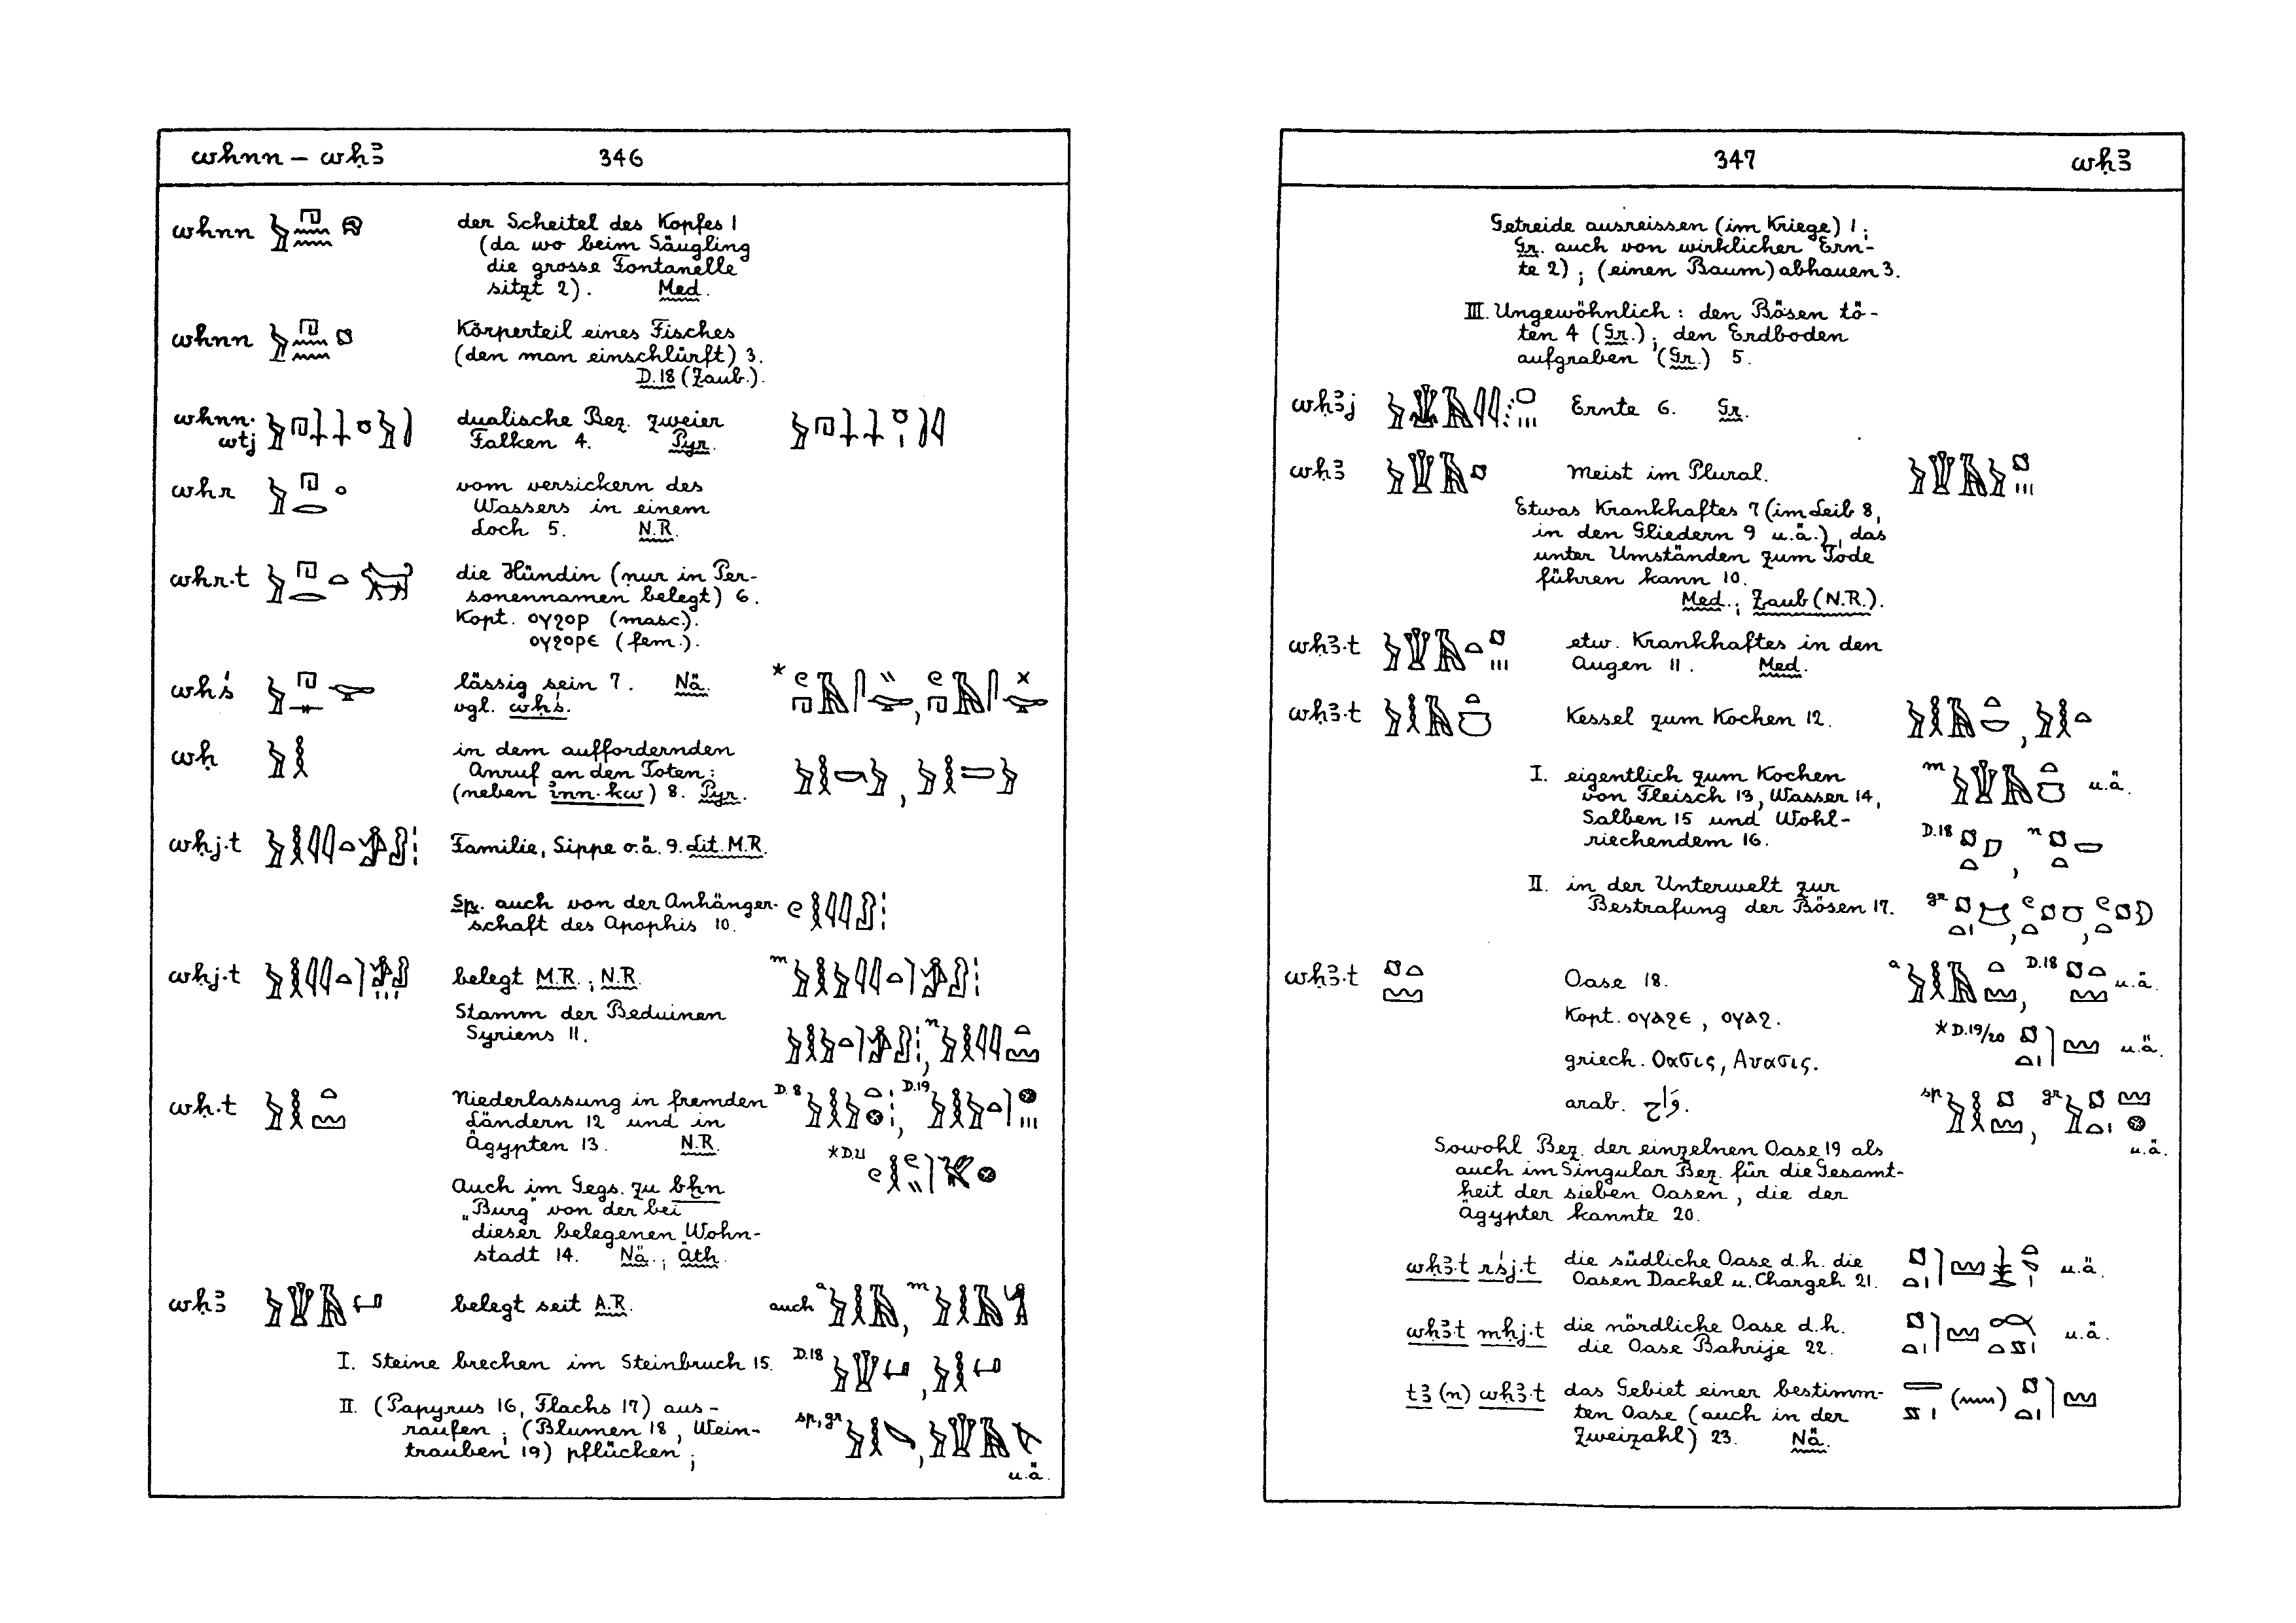 whnn – wḥꜣ 346
whnn der Scheitel des Kopfes 1
(da wo beim Säugling
die grosse Fontanelle
sitzt 2). Med.
whnn Körperteil eines Fisches
(den man einschlürft) 3.
D.18 (Zaub.).
whnn· dualische Bez. zweier
wtj Falken 4. Pyr.
whr vom versickern des
Wassers in einem
Loch 5. N.R.
whr·t die Hündin (nur in Per-
sonennamen belegt) 6.
Kopt. ⲟⲩϩⲟⲣ (masc.).
ⲟⲩϩⲟⲣⲉ (fem.).
whś lässig sein 7. Nä. *
vgl. wḥś.
wḥ in dem auffordernden
Anruf an den Toten:
(neben inn·kw) 8. Pyr.
wḥj·t Familie, Sippe o.ä. 9. Lit. M.R.
Sp. auch von der Anhänger-
schaft des Apophis 10.
wḥj·t belegt M.R.; N.R. m
Stamm der Beduinen
Syriens 11. n
wḥ·t Niederlassung in fremden D.8 D.19
Ländern 12 und in
Ägypten 13. N.R. *D.21
Auch im Gegs. zu bḫn
„Burg" von der bei
dieser belegenen Wohn-
stadt 14. Nä.; Äth.
wḥꜣ belegt seit A.R. auch a m
I. Steine brechen im Steinbruch 15. D.18
II. (Papyrus 16, Flachs 17) aus-
raufen; (Blumen 18, Wein- sp, gr
trauben 19) pflücken;
u.ä.
347 wḥꜣ
Getreide ausreissen (im Kriege) 1;
Gr. auch von wirklicher Ern-
te 2); (einen Baum) abhauen 3.
III. Ungewöhnlich: den Bösen tö-
ten 4 (Gr.); den Erdboden
aufgraben (Gr.) 5.
wḥꜣj Ernte 6. Gr.
wḥꜣ meist im Plural.
Etwas Krankhaftes 7 (im Leib 8,
in den Gliedern 9 u.ä.), das
unter Umständen zum Tode
führen kann 10.
Med.; Zaub (N.R.).
wḥꜣ·t etw. Krankhaftes in den
Augen 11. Med.
wḥꜣ·t Kessel zum Kochen 12.
I. eigentlich zum Kochen m u.ä.
von Fleisch 13, Wasser 14,
Salben 15 und Wohl- D.18 n
riechendem 16.
II. in der Unterwelt zur
Bestrafung der Bösen 17. gr
wḥꜣ·t Oase 18. a D.18 u.ä.
Kopt. ⲟⲩⲁϩⲉ, ⲟⲩⲁϩ. *D.19/20 u.ä.
griech. Οασις, Αυασις.
arab. وَاح. sp gr
u.ä.
Sowohl Bez. der einzelnen Oase 19 als
auch im Singular Bez. für die Gesamt-
heit der sieben Oasen, die der
Ägypter kannte 20.
wḥꜣ·t rśj·t die südliche Oase d.h. die
Oasen Dachel u. Chargeh 21. u.ä.
wḥꜣ·t mḥj·t die nördliche Oase d.h.
die Oase Bahrije 22. u.ä.
tꜣ (n) wḥꜣ·t das Gebiet einer bestimm-
ten Oase (auch in der
Zweizahl) 23. Nä.